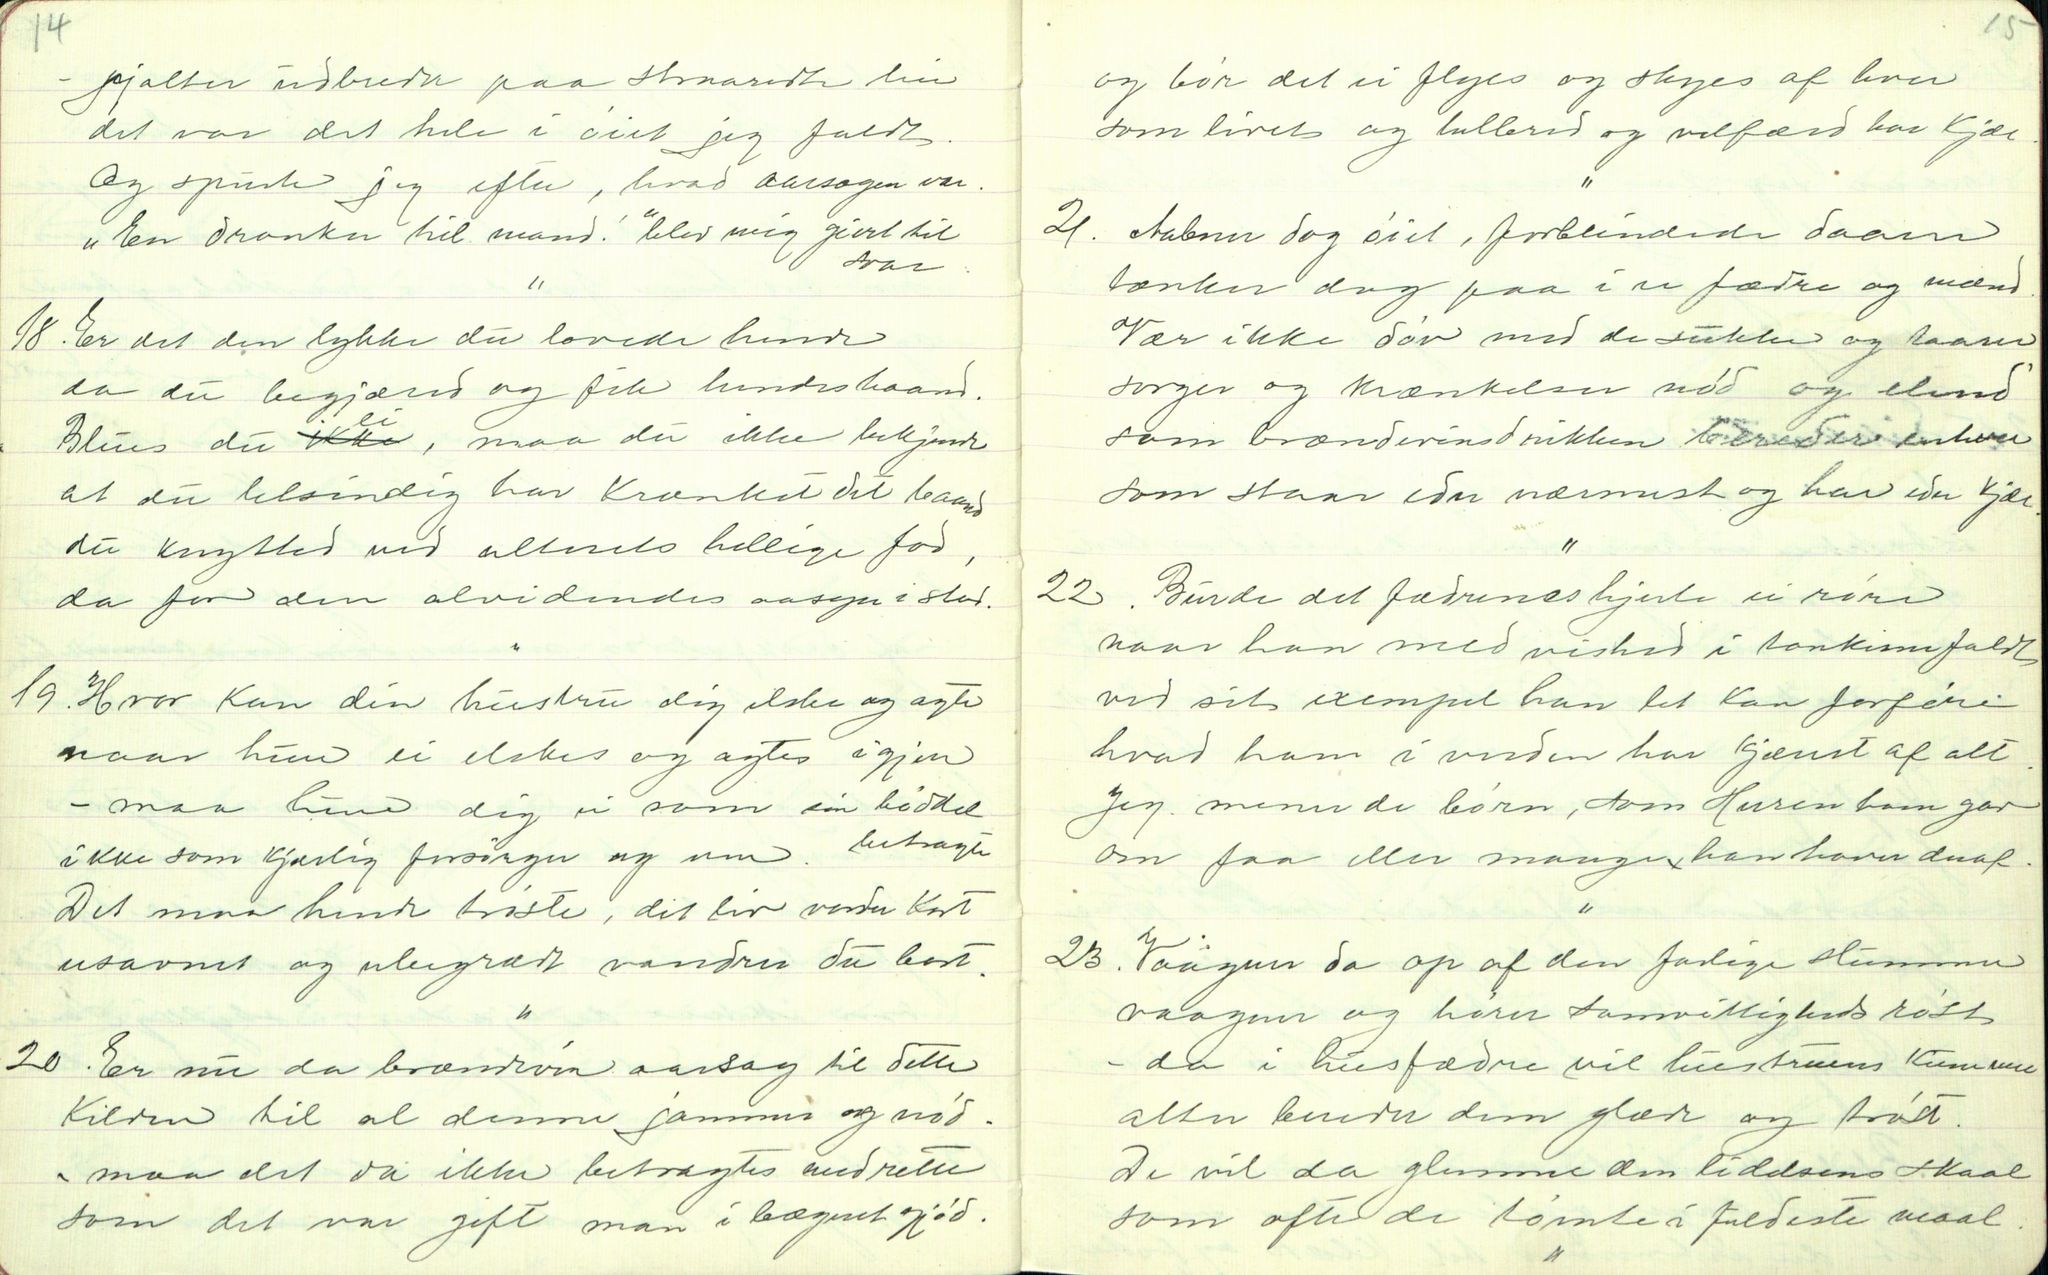 14
- pjalter udbredte paa straaredte leie
det var det hele i óiet jeg faldt.
Og spurte jeg efter, hvad aarsagen var.
"En dranker til mand!" blev mig gjort til
svar.
"
18. Er det den lykke du lovede hende
da du begjæred og fik hendes haand.
Blues du ikke ei, maa du ikke bekjende
at du letsindig har krænket det baand
du knytted ved alterets hellige fod,
da for den alvidendes aasyn i stod.
"
19. Hvor kan din hustru dig elske og agte
naar hun ei elskes og agtes igjen
- maa hun dig ei som sin bóddel
betragte
ikke som kjærlig forsörger og ven.
Det maa hende tróste, dit liv vorder kort
usavnet og ubegrædt vandrer du bort.
"
20. Er nu da brændevin aarsag til dette
Kilden til al denne jammer og nód.
- maa det da ikke betragtes med rette
som det var gift man i bægeret gjód.
15
og bór det ei flyes og skyes af hver
som livet og helbred og velfærd har kjær.
"
21. Aabner dog óiet, forblindede daarer
tænker dog paa i er fædre og mænd.
Vær ikke dóv med de sukke og taarer
sorger og krænkelser nód og elend
som brændevinsdrikken bereder enhver
som staar eder nærmest og har eder kjær.
"
22. Burde det fædrenes hjerte ei róre
naar han med vished i tankerne faldt
ved sit exempel han let kan forfóre
hvad ham i verden har kjærest af alt.
Jeg mener de bórn, som Herren ham gav
om faa eller mange, han haver deraf.
"
23. Vaagner da op af den farlige slummer
vaagner og hórer samvittigheds róst
- da i husfædre vil hustruens kummer
atter bereder dem glæde og tróst.
De vil da glemme den lidelsens skaal
som ofte de tómte i fuldeste maal.
"